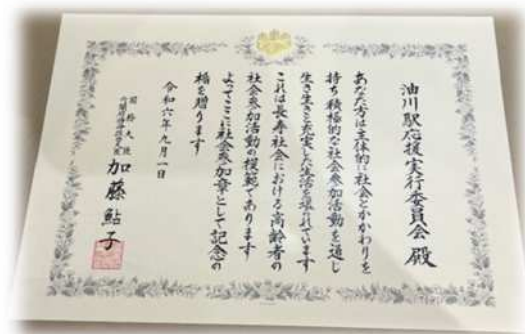 油川駅応援実行委員会 殿
あなた方は主体的に社会とかかわりを
持ち積極的な社会参加活動を通し
生き生きと充実した生活を送れています
これは長寿社会における高齢者の
社会参加活動の模範であります
よってここに社会参加章として記念の
楯を贈ります
令和六年九月一日
国務大臣
加藤鮎子